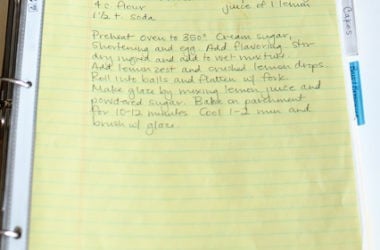 4 c flour
juice of 1 lemon
1½ t. soda
Preheat oven to 350° Cream sugar,
shortening and egg. Add flavoring. Stir
dry ingred and add to wet mixture.
Add lemon zest and crushed lemon drops.
Roll into balls and flatten w/ fork.
Make glaze by mixing lemon juice and
powdered sugar. Bake on parchment
for 10-12 minutes Cool 1-2 min and
brush w/ glaze.
Cakes